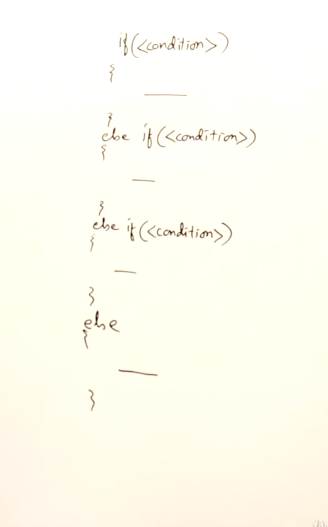 if(<condition>)
{
____
}
else if(<condition>)
{
___
}
else if(<condition>)
{
___
}
else
{
____
}